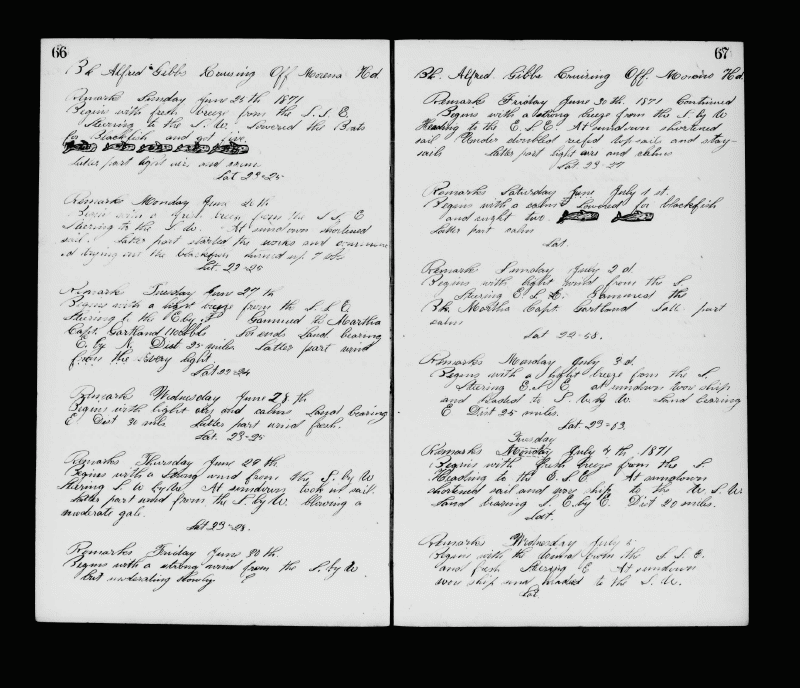 66
Bk Alfred Gibbs Cruising Off Morena Hd
Remarks Sunday June 25th 1871
Begins with fresh breeze from the S.S.E.
Steering to the S.W. Lowered the Boats
for Blackfish and got five.
latter part light airs and calm
Lat 23-25
Remarks Monday June 26 th
Begins with a fresh breeze from the S.S.E
Steering to the S.W. At sundown shortened
sail. latter part started the works and
trying out the blackfish
Lat. 23-20
Remarks Tuesday June 27 th
Begins with a light breeze from the S.S.E.
Steering to the E by S Gammed the Martha
Capt. Land bearing
E. by N. Dist 25 miles Latter part wind
from the light.
Lat 23-24
Remarks Wednesday June 28 th
Begins with light airs and calms Land bearing
E. Dist 30 mile latter part wind fresh.
Lat. 23-25
Remarks Thursday June 29 th
Begins with a strong wind from the S. by W
Steering At sundown took in sail.
latter part wind from the S. by W. blowing a
moderate gale.
Lat 23-28.
Remarks Friday June 30 th
Begins with a strong wind from the S. by W
but moderating slowly
67
Bk. Alfred Gibbs Cruizing Off. Hd
Remarks Friday June 30 th. 1871 Continued
Begins with a strong breeze from the S. by W
Heading to the E.S.E. At sundown shortened
sail Under doubled reefed topsails and stay-
sails latter part light airs and calms
Lat 23-27
Remarks Saturday June July 1 st.
Begins with a calm Lowered for blackfish
and caught two.
latter part calm
Lat.
Remarks Sunday July 2 d.
Begins with light wind from the S.
Steering E.S.E. Gammed the
Bk. Martha Capt. Gartland Latt. part
calm
Lat 22-58.
Remarks Monday July 3 d.
Begins with a light breeze from the S.
Steering E.S.E. at sundown wore ship
and headed to S.W. by W. Land bearing
E Dist 25 miles.
Lat 23-03.
Tuesday
Remarks Monday July 4 th. 1871
Begins with fresh breeze from the S.
Heading to the E.S.E. At sundown
shortened sail and wore ship to the W.S.W.
Land bearing S.E. by E. Dist 20 miles.
Lat.
Remarks Wednesday July 5
Begins with the wind from the S.S.E.
and fresh Steering E At sundown
wore ship and headed to the S.W.
Lat.